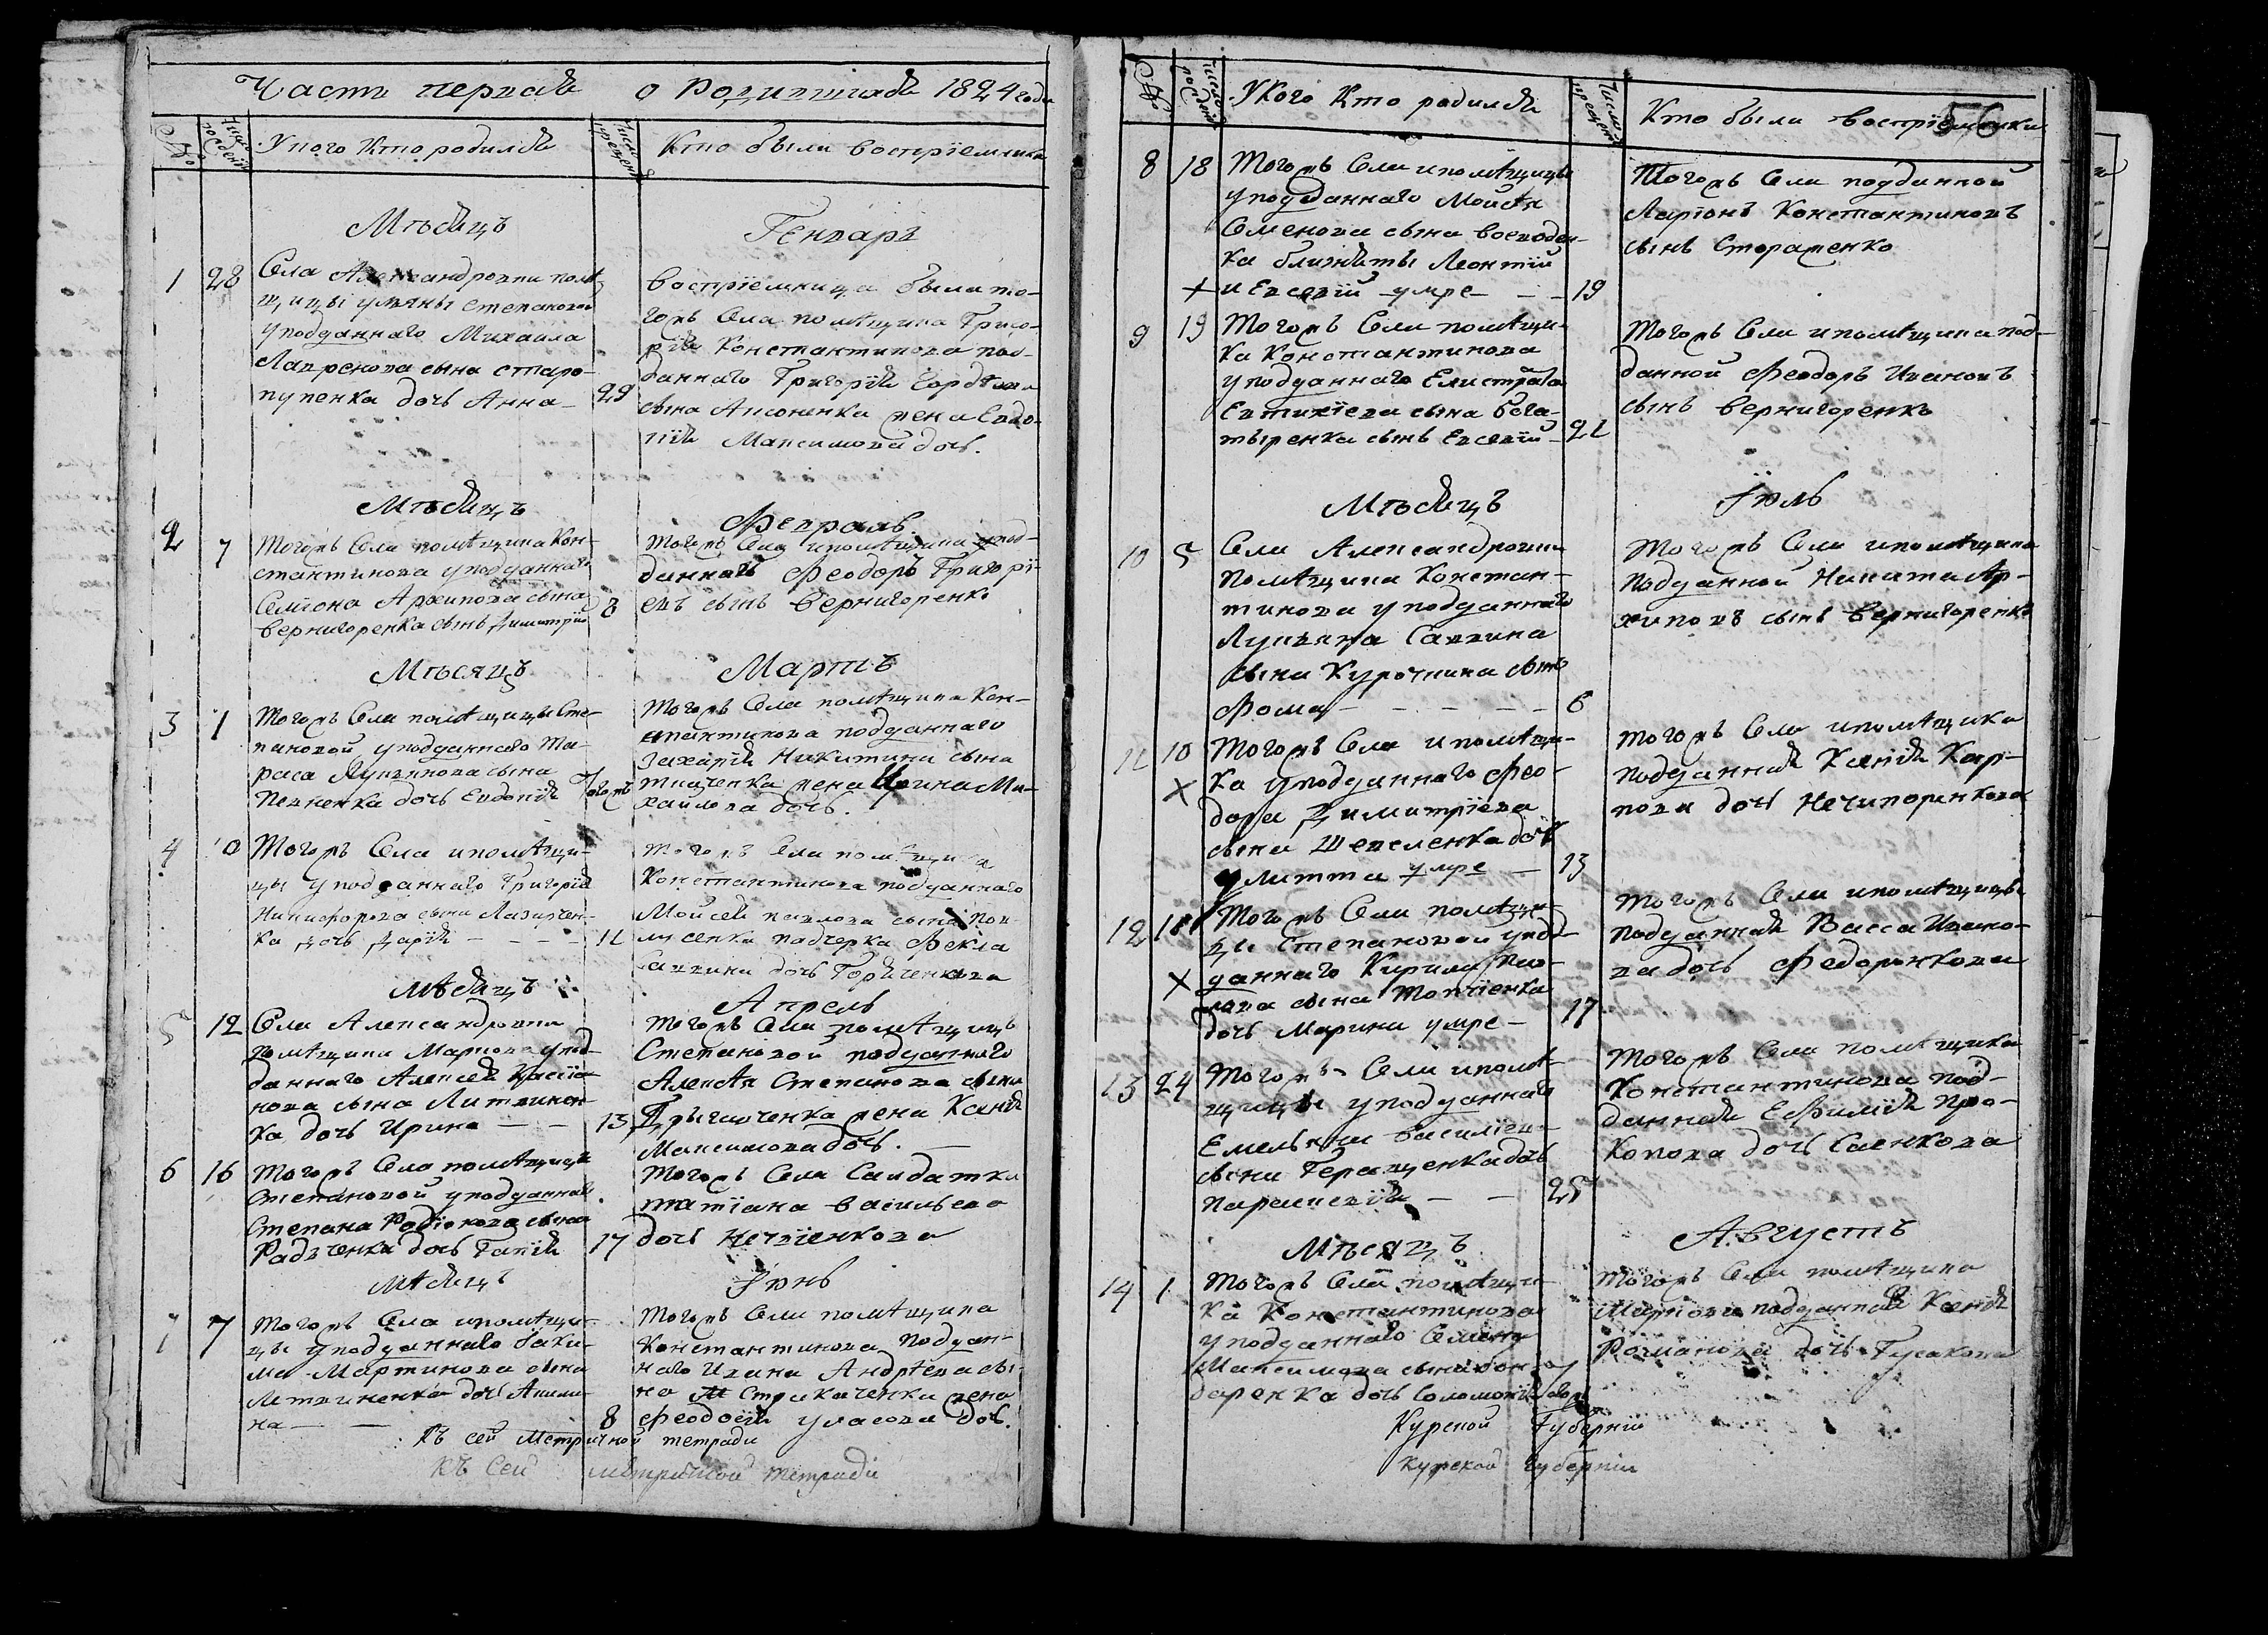 Часть первая о родившихся 1824 года
№ Число рожденія У кого кто родился Число крещенія Кто были воспріемники
Мѣсяцъ Генварь
1 28 Села Александровки помѣ-
щицы Ульяны Степановой
у подданнаго Михаила
Лавренова сына Старо-
пупенка дочь Анна 29
воспріемница была то-
гожъ села помѣщика Григо-
рія Константинова под-
даннаго Григорія Гордѣева
сына жена Евдо-
кія Максимова дочь.
Мѣсяцъ Февраль
2 7 Тогожъ села помѣщика Кон-
стантинова у подданнаго
Семіона Архипова сына
Вернигоренка сынъ Димитрій 8
Тогожъ села и помѣщика под-
данный Феодоръ Григорі-
евъ сынъ Вернигоренко
Мѣсяцъ Мартъ
3 1 Тогожъ села помѣщицы Сте-
пановой у подданнаго Та-
раса Лукьянова сына
Певненка дочь Евдокія Тогожъ
Тогожъ села помѣщика Кон-
стантинова подданнаго
Захарія Никитина сына
Ткаченка жена Ирина Ми-
хайлова дочь.
4 10 Тогожъ села и помѣщи-
цы у подданнаго Григорія
Никифорова сына Лазирчен-
ка дочь Дарія 11
Тогожъ села помѣщика
Константинова подданнаго
Мойсея Павлова сына
падчерка Фекла
Саввина дочь Горяченкова
Мѣсяцъ Апрель
5 12 Села Александровки
помѣщика Маркова у под-
даннаго Алексея Кассіа-
нова сына Литвинен-
ка дочь Ирина 13
Тогожъ села помѣщицы
Степановой подданнаго
Алексѣя Степанова сына
жена Ксенія
Максимова дочь.
6 16 Тогожъ села помѣщицы
Степановой у подданнаго
Степана Родіонова сына
Радченка дочь Гапія 17
Тогожъ села салдатка
Татіана Васильева
дочь
Мѣсяцъ Іюнь
7 7 Тогожъ села и помѣщи-
цы у подданнаго
Мартинова сына
Литвиненка дочь Акили-
на 8
Тогожъ села помѣщика
Константинова поддан-
наго Ивана Андрѣева сы-
на Стрикаченка жена
Феодосія Уласова дочь.
Къ сей метричной тетради
Къ сей метричной тетради
56
№ Число рожденія У кого кто родился Число крещенія Кто были воспріемники
8 18 Тогожъ села и помѣщицы
у подданнаго Мойсѣя
Семенова сына
ка близняты Леонтій
и Евсевій умре 19
Тогожъ села подданной
Ларіонъ Константиновъ
сынъ Стораженко
9 19 Тогожъ села помѣщи-
ка Константинова
у подданнаго Елистрата
Евтихіева сына Бога-
тыренка сынъ Евсевій 21
Тогожъ села и помѣщика под-
данной Феодоръ Ивановъ
сынъ Вернигоренко
Мѣсяцъ Іюль
10 5 Села Александровки
помѣщика Констан-
тинова у подданнаго
Лукьяна Саввина
сына Курочкина сынъ
Фома 6
Тогожъ села и помѣщика
подданной Никита Ар-
хиповъ сынъ Вернигоренко
11 10 Тогожъ села и помѣщи-
ка у подданнаго Фео-
дора Димитріева
сына Шевеленка дочь
Улитта умре 13
Тогожъ села и помѣщика
подданная Ксенія Кар-
пова дочь Нечипоренкова
12 16 Тогожъ села помѣщи-
цы Степановой у под-
даннаго Кирила Пав-
лова сына
дочь Марина умре 17
Тогожъ села и помѣщицы
подданная Васса Ивано-
ва дочь Федоренкова
13 24 Тогожъ села и помѣ-
щицы у подданнаго
Емельяна Василіева
сына Геращенка дочь
Параскевія 25
Тогожъ села помѣщика
Константинова под-
данная Ефимія Про-
копова дочь Саенкова
Мѣсяцъ Августъ
14 1 Тогожъ села помѣщи-
ка Константинова
у подданнаго Семена
Максимова сына Бон-
даренка дочь Соломонія тогожъ
Тогожъ села помѣщика
Маркова подданная Ксенія
Романова дочь Гусакова
Курской губерніи
Курской губерніи